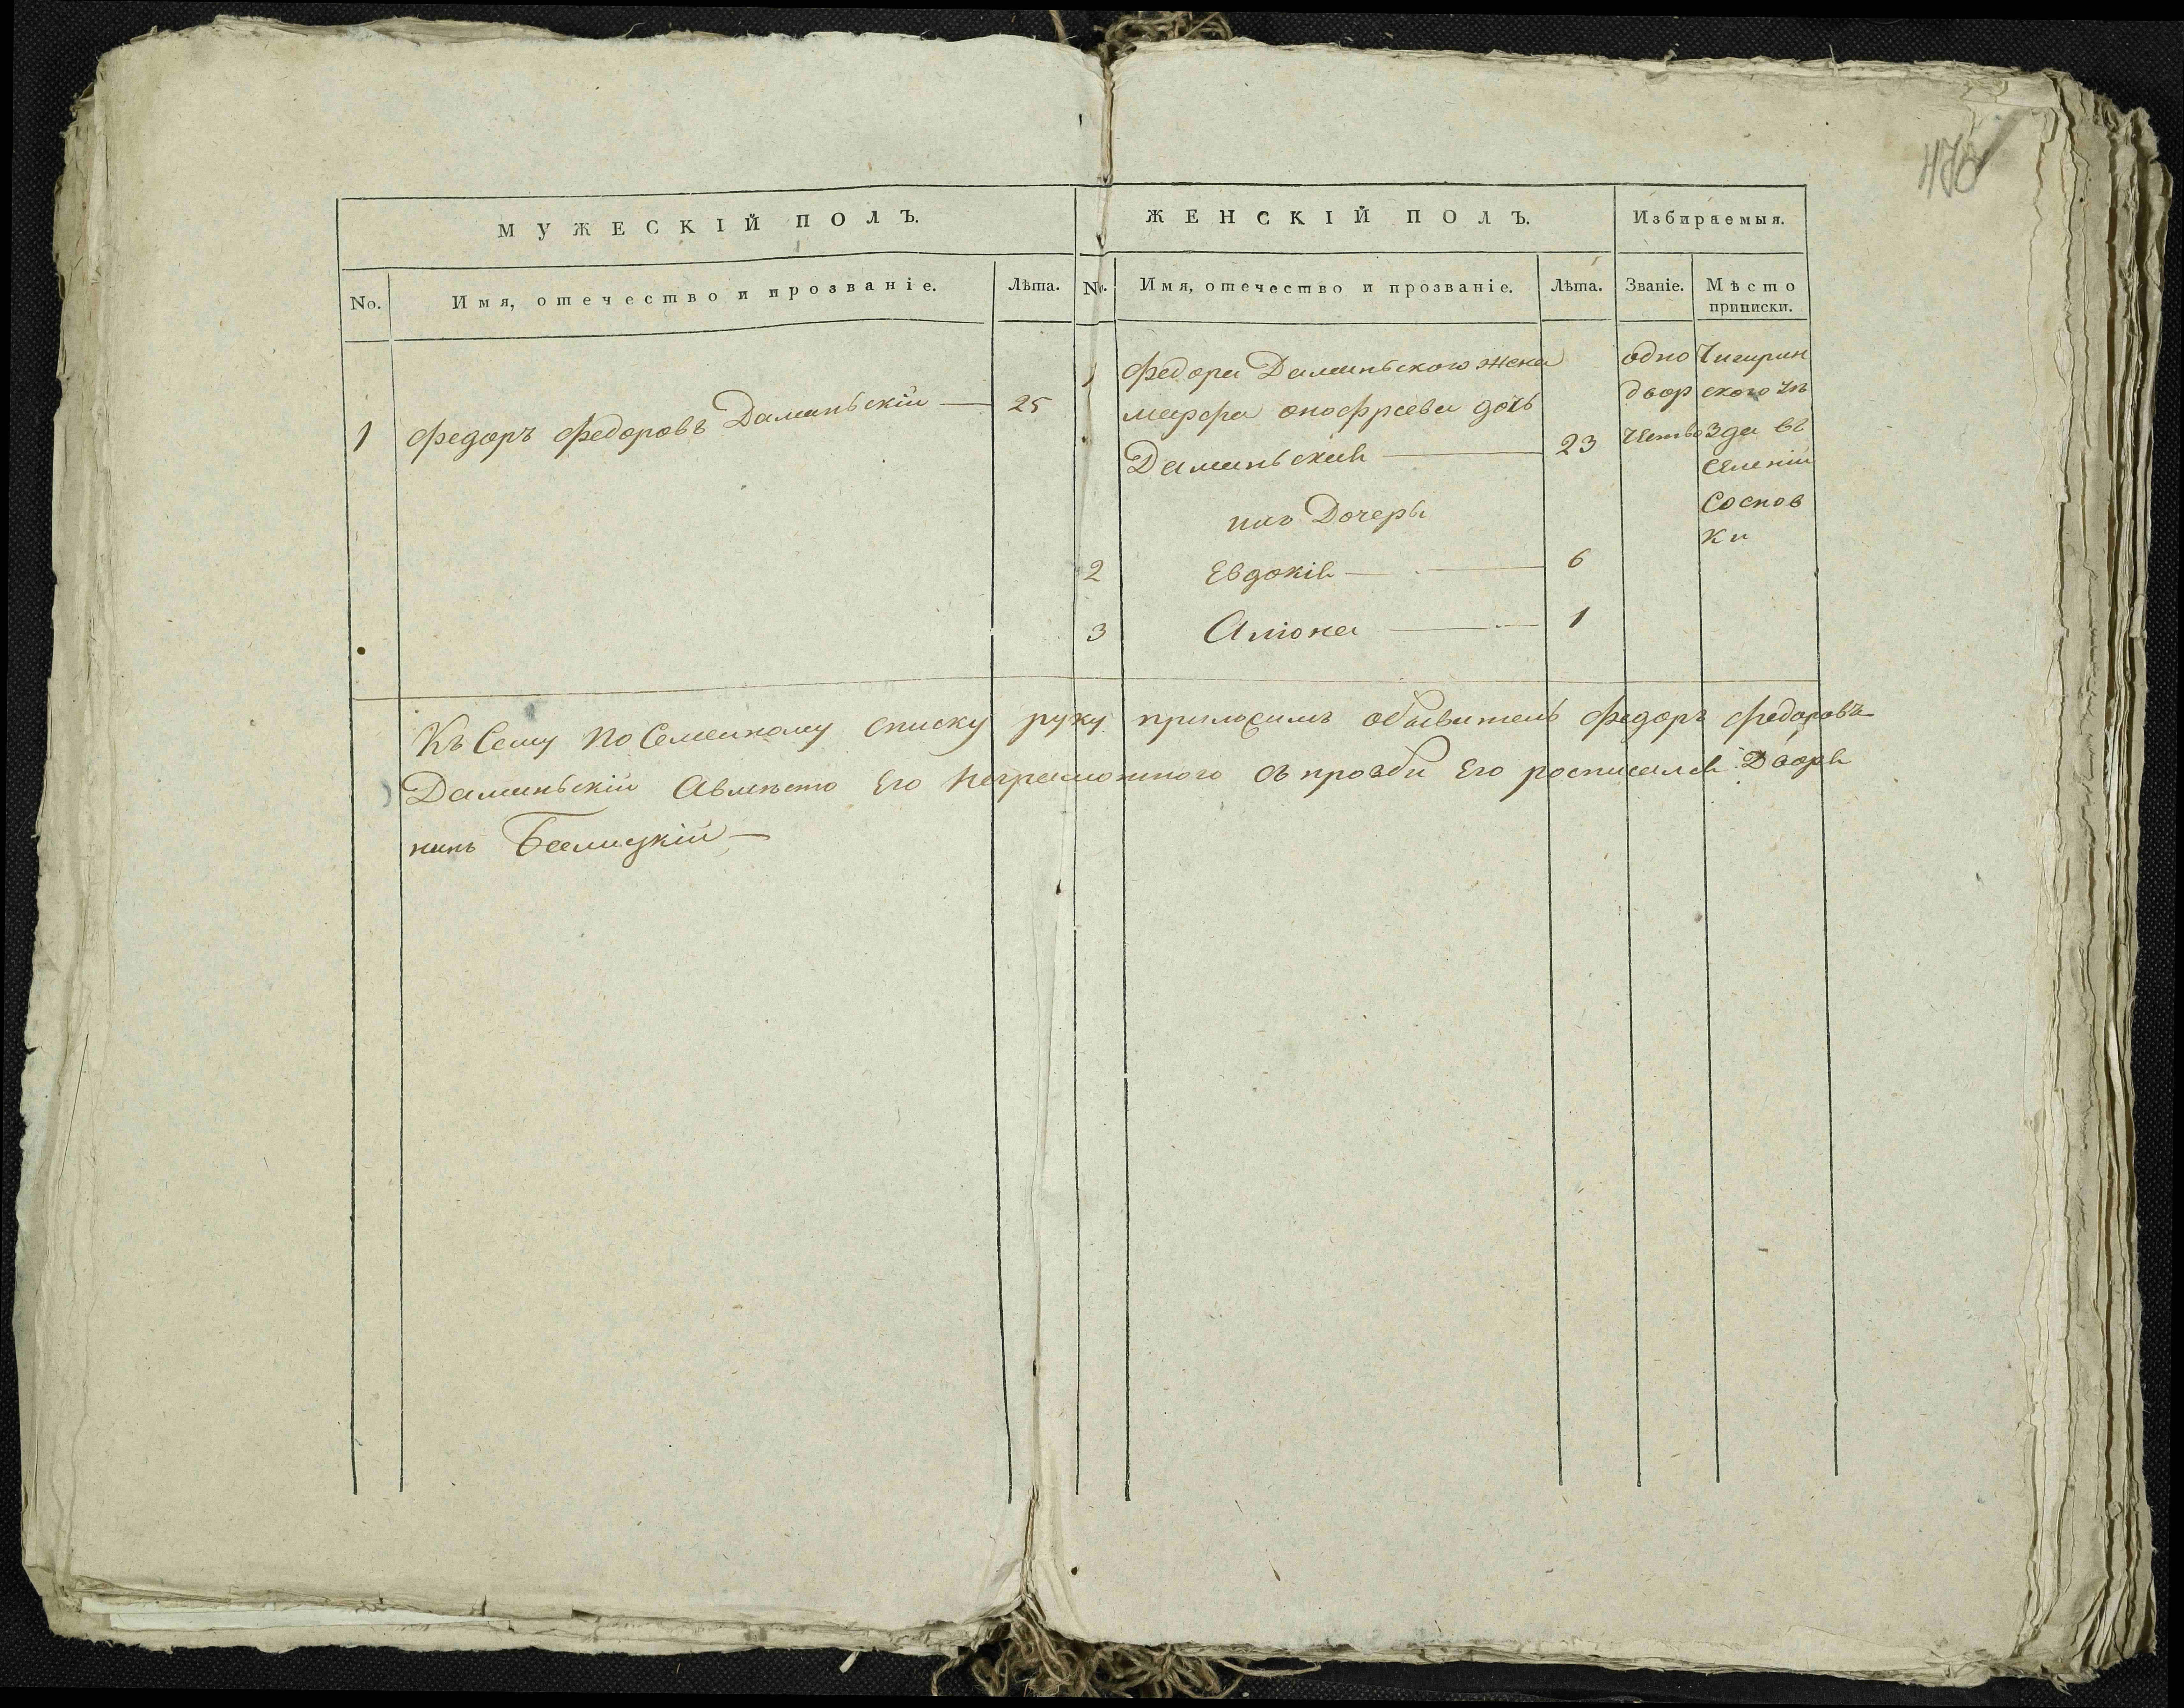 470
МУЖЕСКІЙ ПОЛЪ.
ЖЕНСКІЙ ПОЛЪ.
Избираемыя.
No.
Имя, отечество и прозваніе.
Лѣта.
No.
Имя, отечество и прозваніе.
Лѣта.
Званіе.
Мѣсто
приписки.
1 Федоръ Федоровъ Даманьскій — 25
1 Федора Даманьского жена
марфа онофрѣева дочь
Даманьская — 23
ихъ Дочеры
2 Евдокія — 6
3 Аліона — 1
одно
двор
чество
Чигирин
ского уѣ
зда въ
Селеніи
Соснов
ки
Къ Сему По Семейному списку руку приложилъ обыватель Федоръ Федоровъ
Даманьскій Авмѣсто Его Неграмотного съ прозби Его росписался Дворя
нинъ Белицкій —